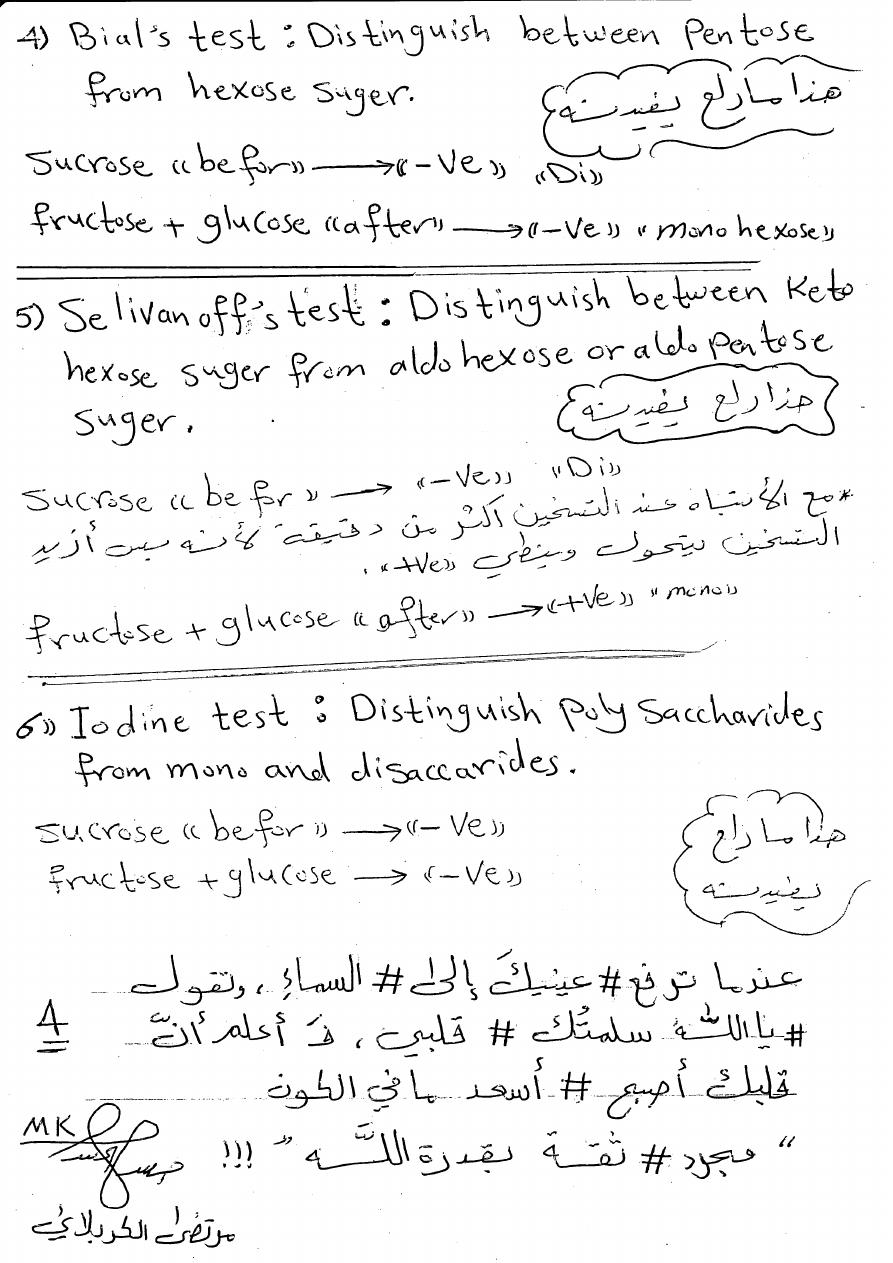 4) Bial's test : Distinguish between Pentose
from hexose suger.
هذا ما راح يفيدنه
Sucrose «befor» → «-Ve» «Di»
fructose + glucose «after» → «-Ve» «mono hexose»
5) Selivanoff's test : Distinguish between Keto
hexose suger from aldohexose or aldo pentose
suger.
هذا راح يفيدنه
Sucrose «befor» → «-Ve» «Di»
*مع الأنتباه عند التسخين اكثر من دقيقة لأنه بس أزيد
التسخين يتحول وينطي «+Ve».
fructose + glucose «after» → «+Ve» «mono»
6) Iodine test : Distinguish Poly Saccharides
from mono and disaccarides.
sucrose «befor» → «-Ve»
fructose + glucose → «-Ve»
هذا ما راح
يفيدنه
عندما ترفع #عينيكَ إلى #السماءِ، وتقول
#يا اللّٰه سلمتُك #قلبي، فَأعلم أنَّ
4
قلبكَ أصبح #أسعد ما في الكون
“ مجرد #ثقة بقدرة اللَّه ” !!!
MK
مرتضى الكربلائي